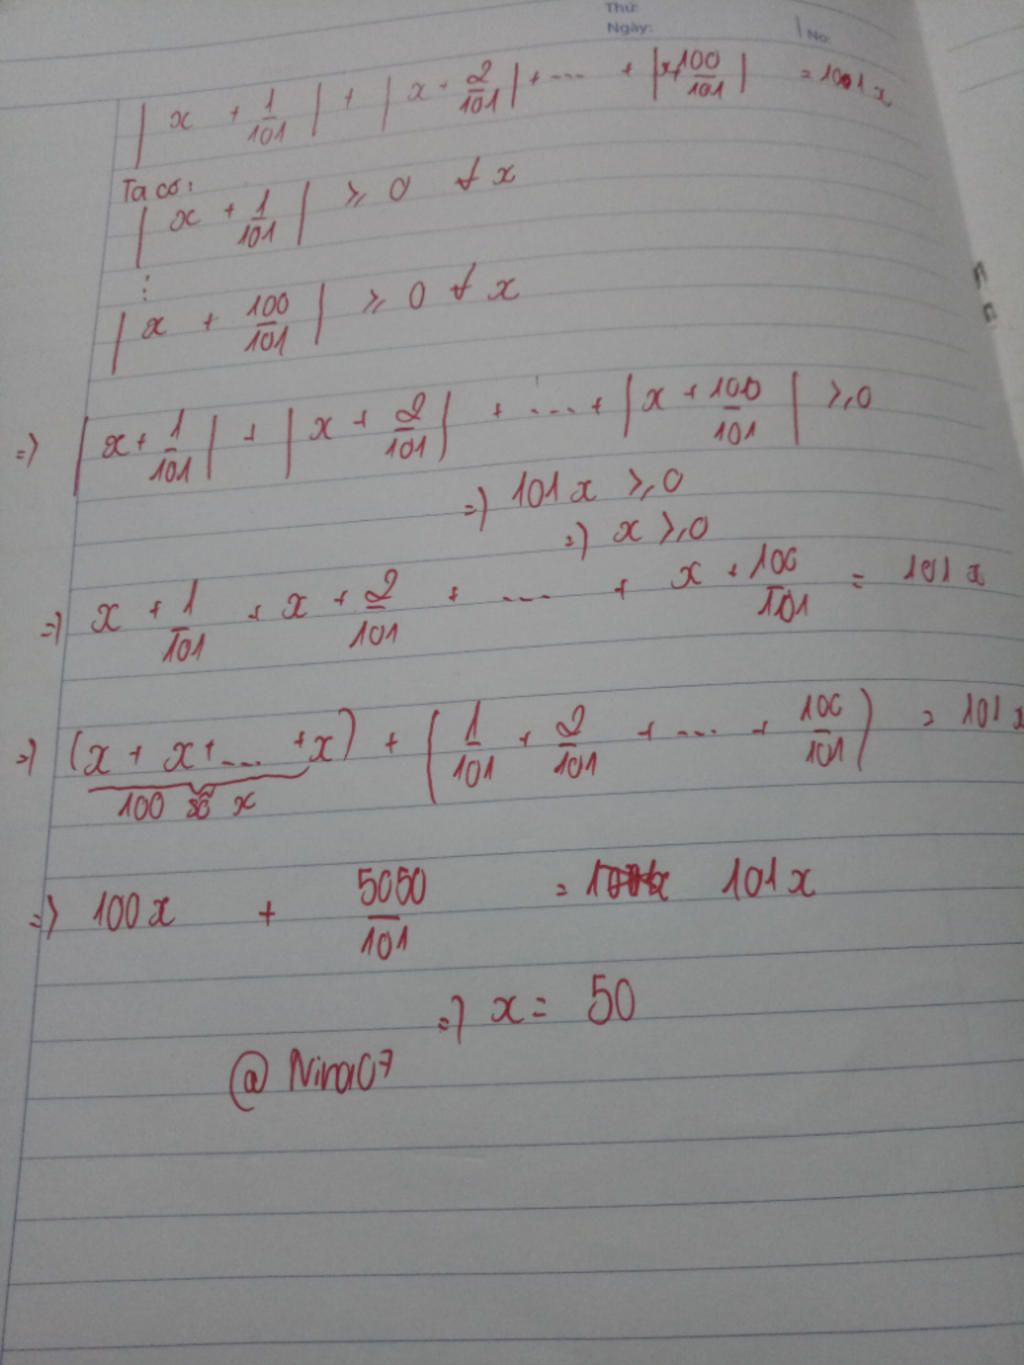 Thứ:
Ngày: No:
| x + 1/101 | + | x + 2/101 | + ... + | x + 100/101 | = 101x
Ta có:
| x + 1/101 | ⩾ 0 ∀ x
⋮
| x + 100/101 | ⩾ 0 ∀ x
=) | x + 1/101 | + | x + 2/101 | + ... + | x + 100/101 | ⩾ 0
=) 101x ⩾ 0
=) x ⩾ 0
=) x + 1/101 + x + 2/101 + ... + x + 100/101 = 101x
=) (x + x + ... + x) + (1/101 + 2/101 + ... + 100/101) = 101x
100 số x
=) 100x + 5050/101 = 101x
=) x = 50
@ Nina07